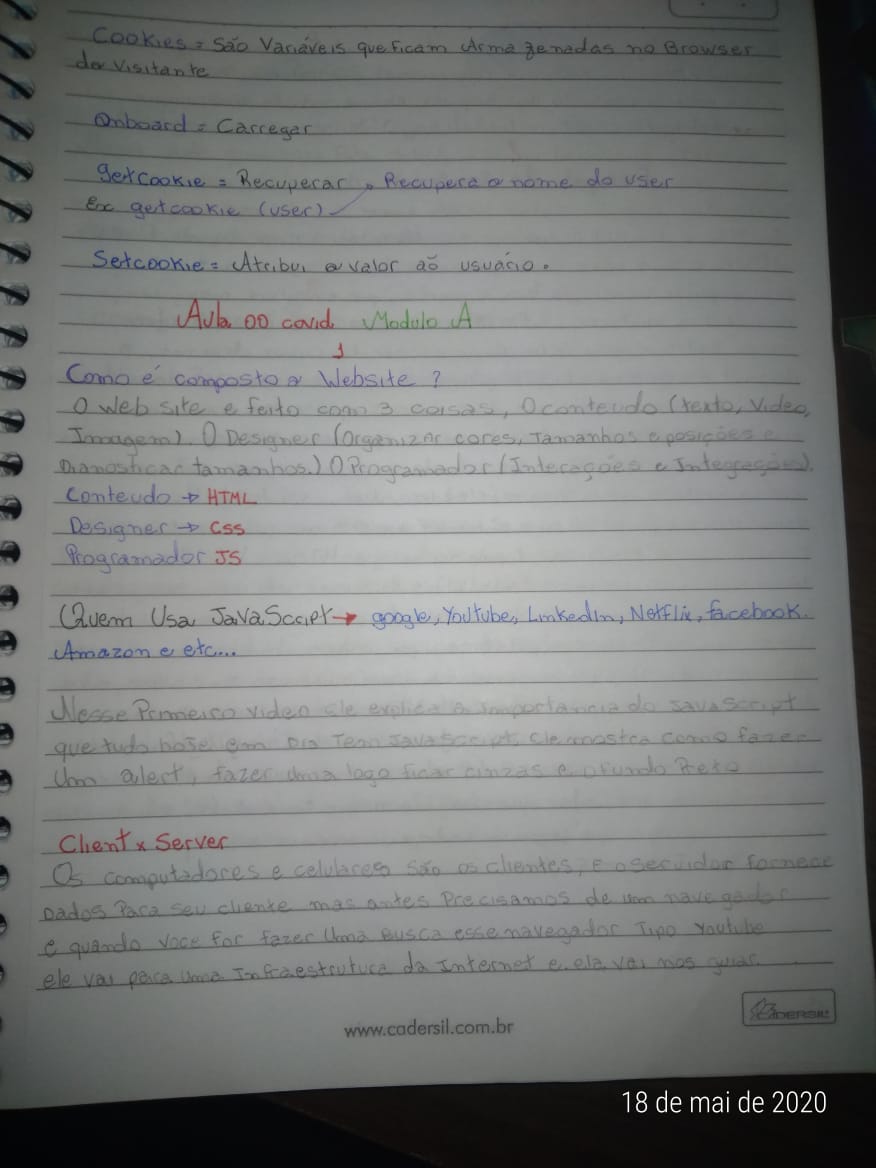 Cookies = São Variáveis que ficam Armazenadas no Browser
do Visitante
Onboard = Carregar
getcookie = Recuperar, Recupera o nome do user
Ex getcookie (user)
Setcookie = Atribui o valor aõ usuário.
Aula 00 covid Modulo A
1
Como é composto o Website?
O web site e feito com 3 coisas, O conteudo (texto, Video,
Imagem). O Designer (Organizar cores, Tamanhos e posições e
Dianosticar tamanhos.) O Programador (Interações e Integrações).
Conteudo → HTML
Designer → CSS
Programador JS
Quem Usa JavaScript → google, Youtube, LinkedIn, Netflix, facebook.
Amazon e etc...
Nesse Primeiro video ele explica a importancia do JavaScript
que tudo hoje em Dia Tem JavaScript, ele mostra como fazer
Um alert, fazer uma logo ficar cinzas e o fundo Preto
Client x Server
Os computadores e celulares são os clientes, e o servidor fornece
Dados Para seu cliente mas antes Precisamos de um navegador
e quando voce for fazer Uma Busca esse navegador Tipo Youtube
ele vai para Uma Infraestrutura da Internet e ela vai nos guiar
www.cadersil.com.br
CADERSIL
18 de mai de 2020